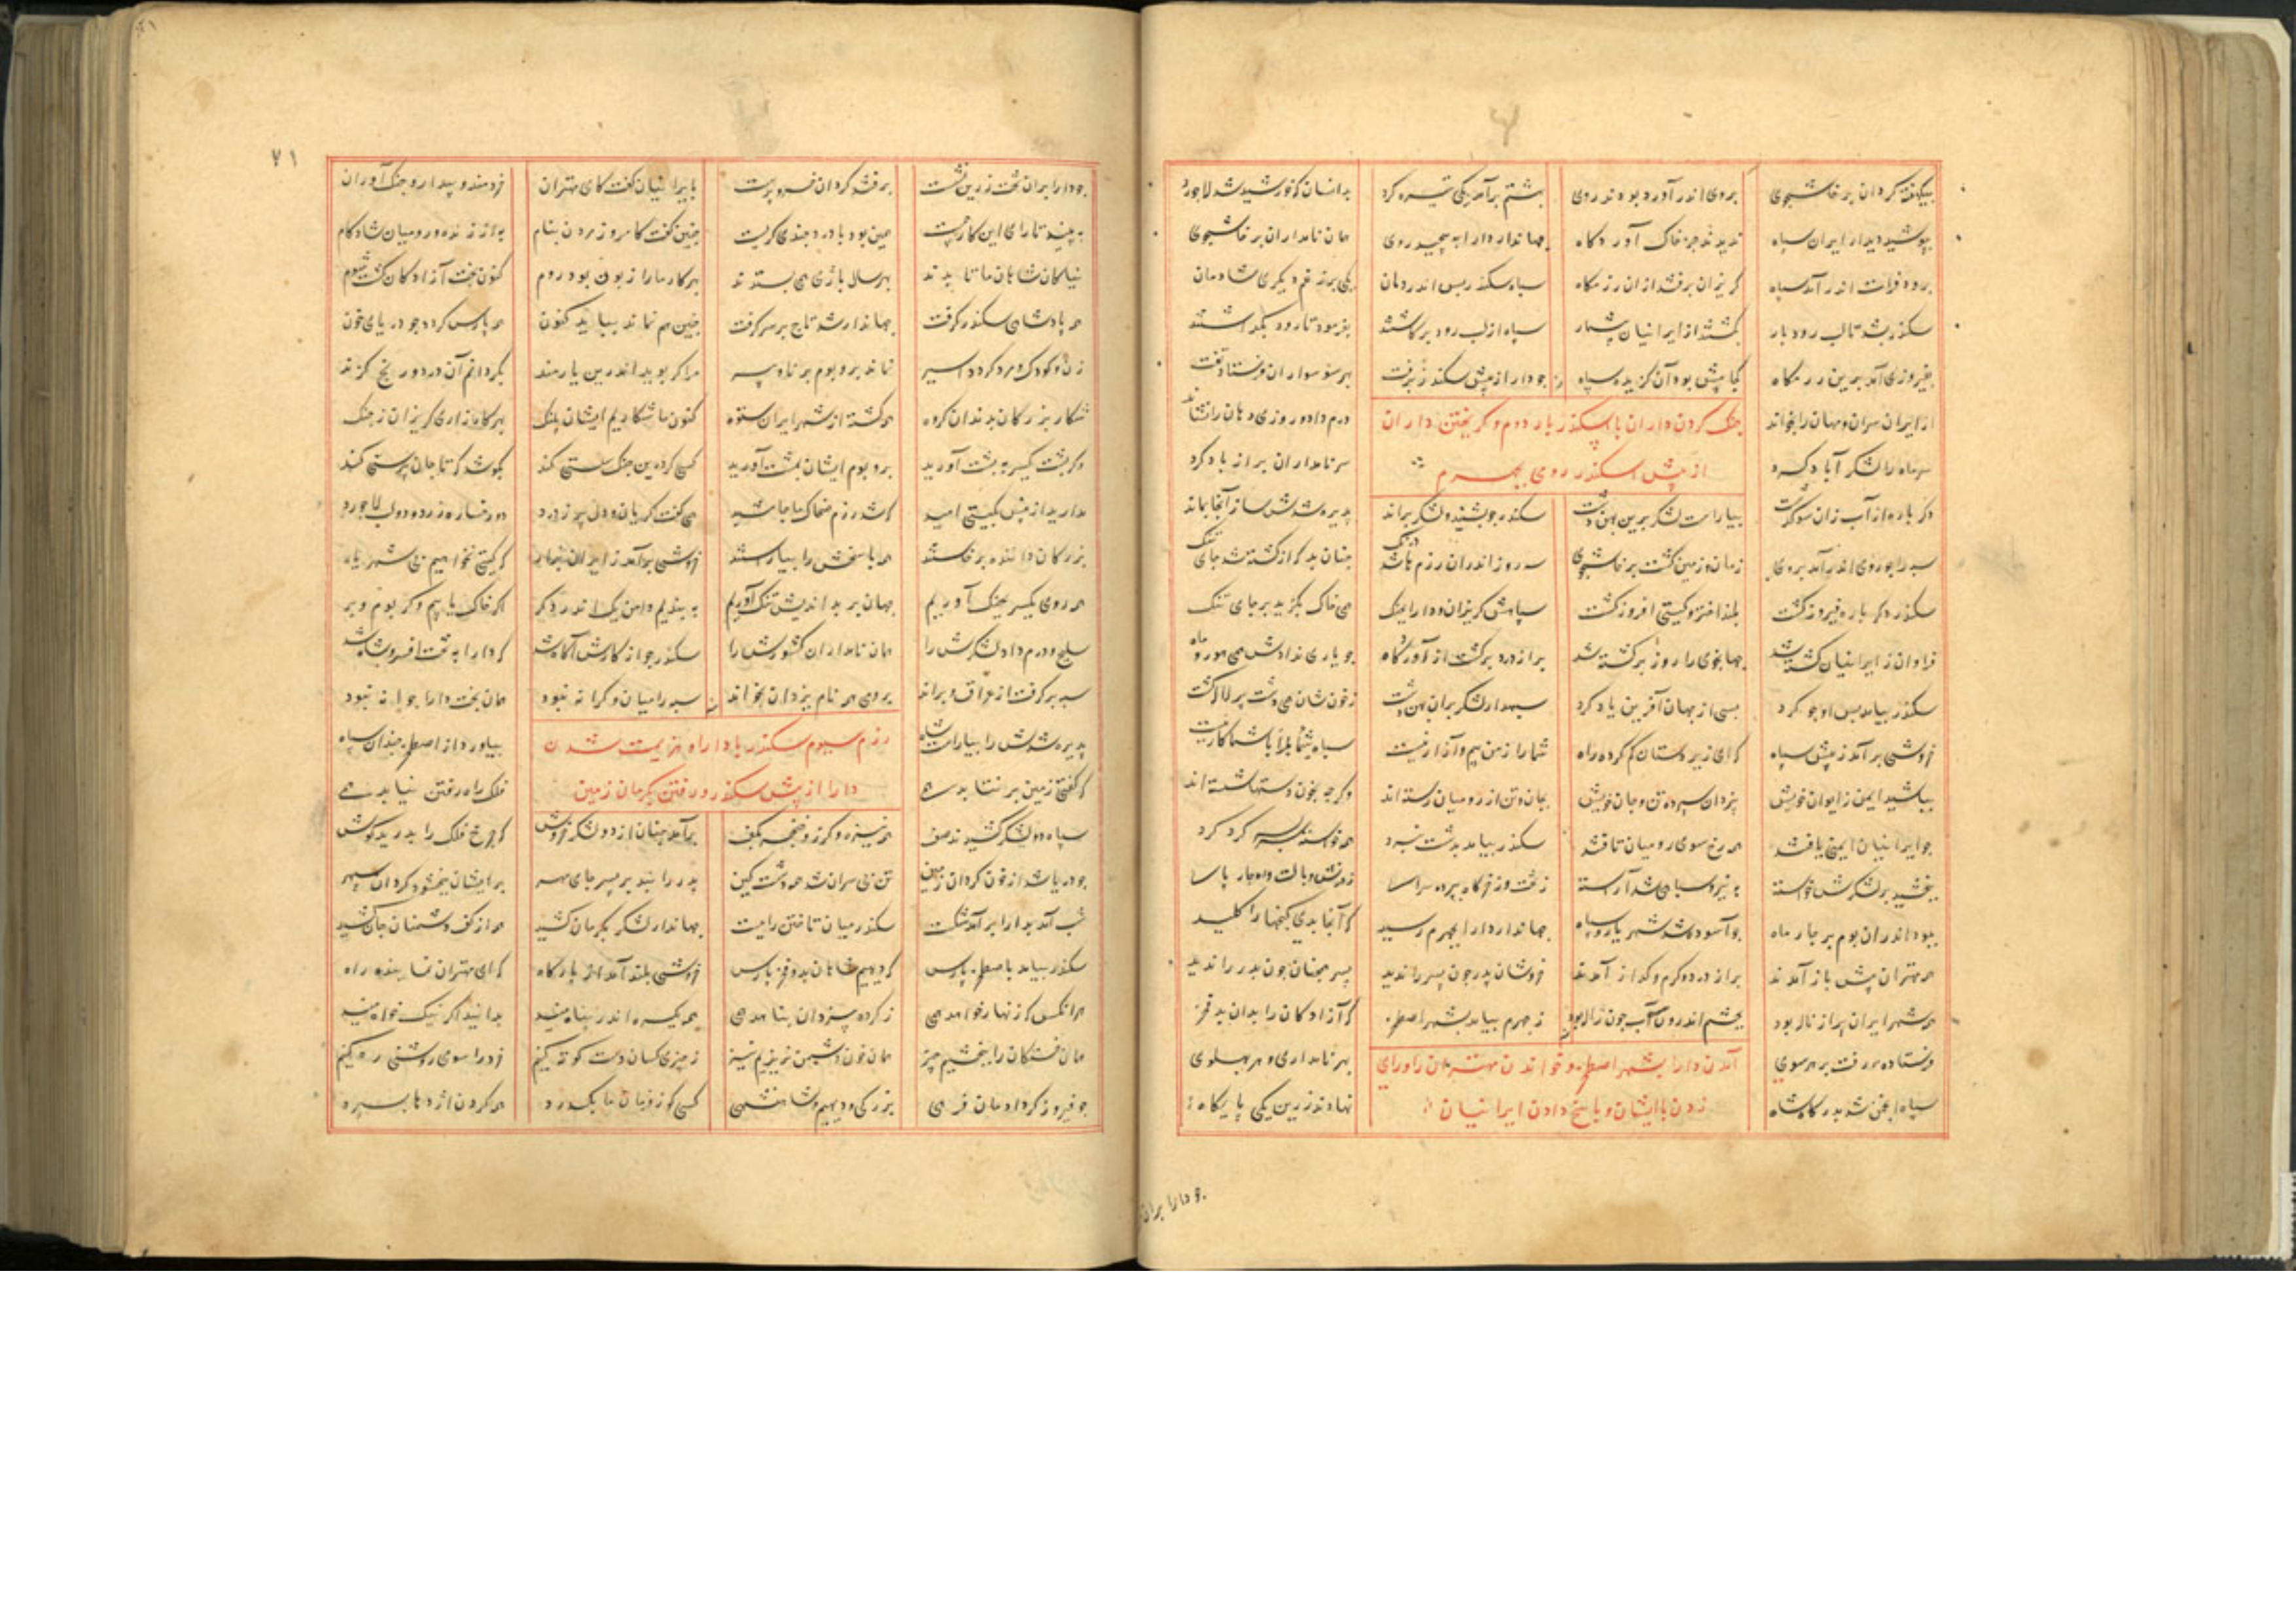 بیکهفته کردان پرخاشجوی بروی اندر آورده بودند روی بهشتم برآمد یکی تیره کرد بدانسان که خورشید شد لاجورد
بپوشید دیدار ایران سپاه ندیدند جز خاک آوردکاه جهاندار دارا به پیچید روی همان نامداران پرخاشجوی
برود فرات اندر آمد سپاه کریزان برفتند ازان رزمکاه سپاه سکندر پس اندر دمان یکی پر ز غم دیکری شادمان
سکندر بشد تا لب رودبار بکشتند از ایرانیان بی‌شمار سپاه از لب رود برکاشتند بفرمود تا رود بگذاشتند
بفیروزی آمد برین رزمکاه کجا پیش بود آن کزیده سپاه جو دارا ز پیش سکندر برفت بهر سو سواران فرستاد تفت
جنک کردن داران با اسکندر بار دوم و کریختن داران
از پیش اسکندر روی بجهرم
از ایران سران و مهان را بخواند درم داد و روزی دهان را نشاند
سر ماه را لشکر آباد کرد سر نامداران پر از باد کرد
دکر باره از آب زان سو کذشت بیاراست لشکر برین پهن دشت سکندر جو بشنید لشکر براند پذیره شدش ساز آنجا بماند
سپه را جو روی اندر آمد بروی زمان و زمین کشت پرخاشجوی سه روز اندران رزم شد درنک جنان بد که از کشته شد جای تنک
سکندر دکر باره فیروز کشت بلند اختر و کیتی افروز کشت سپاهش کریزان و دارا بجنک همی خاک بکزید بر جای تنک
فراوان ز ایرانیان کشته شد جهانجوی را روز برکشته شد پر از درد برکشت از آوردکاه جو یاری ندادش همی هور و ماه
سکندر بیامد پس او جو کرد بسی از جهان آفرین یاد کرد سپهدار لشکر بران پهن دشت ز خون شان همی دشت پر لاله کشت
خروشی برآمد ز پیش سپاه که ای زیردستان کم کرده راه شما را ز من بیم و آزار نیست سپاه شما را با شما کار نیست
بباشید ایمن ز ایوان خویش بیزدان سپرده تن و جان خویش بجان و تن از رومیان رسته‌اند وکرجه بخون دستها شسته‌اند
جو ایرانیان ایمنی یافتند همه رخ سوی رومیان تافتند سکندر بیامد بدشت نبرد همه خواسته سربسر کرد کرد
ببخشید بر لشکرش خواسته به نیرو سپاهی شد آراسته
ببود اندران بوم بر جار ماه جو آسوده شد شهریار و سپاه جهاندار دارا بجهرم رسید که آنجا بدی کنجها را کلید
همه مهتران پیش باز آمدند پر از درد و کرم و کداز آمدند خروشان پدر جون پسر را ندید پسر همجنان جون پدر را ندید
همه شهر ایران پر از ناله بود بجشم اندرون آب جون ژاله بود ز جهرم بیامد بشهر اصطخر که آزادکان را بدان بد فخر
آمدن دارا بشهر اصطخر و خواندن مهتران را و رای
زدن با ایشان و پاسخ دادن ایرانیان
فرستاده رفت بر هر سوی بهر نامداری و هر پهلوی
سپاه انجمن شد بدرکاه شاه نهادند زرین یکی پایکاه
جو دارا بران
۷۱
جو دارا بران تخت زرین نشست برفتند کردان خسرو پرست بایرانیان کفت کای مهتران خردمند و بیدار و جنک آوران
به بینید تا رای این کار جیست همین بود با درد جندی کریست جنین کفت کامروز مردن بنام به از زنده و رومیان شادکام
نیاکان شاهان ما تا بدند بهر سال باژی همی بستدند بهر کار ما را زبون بود روم کنون بخت آزادکان کشت شوم
همه پادشاهی سکندر کرفت جهاندار شد تاج بر سر کرفت جنین هم نماند بیاید کنون همه پارس کردد جو دریای خون
زن و کودک و مرد کردد اسیر نماند برو بوم برناه و پیر مرا کر بوید اندرین یارمند بکردانم آن درد و رنج کزند
شکار بزرکان بدند آن کروه همه کشته از شهر ایران ستوه کنون ما شکاریم ایشان پلنک بهر کارزاری کریزان ز جنک
دکر پشت یکسر به پشت آورید برو بوم ایشان بمشت آورید کسی کو درین جنک سستی کند بکوشد که تا جان پرستی کند
مدارید ازین پس بکیتی امید که شد رزم ضحاک با جمشید همی کفت کریان و دل پر ز درد دو رخساره زرد و دو لب لاجورد
بزرکان داننده برخاستند همه پاسخش را بیاراستند خروشی برآمد ز ایران بزار که کیتی نخواهیم بی شهریار
همه روی یکسر بجنک آوریم جهان بر بداندیش تنک آوریم به بندیم دامن یک اندر دکر اکر خاک یابیم و کر بوم و بر
سلیح و درم داد لشکرش را همان نامداران کشورش را سکندر جو از کارش آکاه شد که دارا به تخت افسر و شاه شد
سپه برکرفت از عراق و براند برومی همه نام یزدان بخواند سپه را میان و کرانه نبود همان بخت دارا جوانه نبود
رزم سیوم سکندر با دارا و هزیمت شدن
دارا از پیش سکندر و رفتن بکرمان زمین
پذیره شدش را بیاراست شاه بیاورد از اصطخر جندان سپاه
که کفتی زمین بر نتابد همی فلک راه رفتن نیابد همی
سپاه دو لشکر کشیدند صف همه نیزه و کرز و خنجر بکف برآمد جنان از دو لشکر خروش که جرخ فلک را بدرید کوش
جو دریا شد از خون کردان زمین تن بی سران شد همه دشت کین پدر را نبد بر پسر جای مهر بر ایشان نبخشود کردان سپهر
شب آمد بدارا برآمد شکست سکندر میان تاختن را ببست جهاندار لشکر بکرمان کشید همه از کف دشمنان جان کشید
سکندر بیامد باصطخر پارس که دیهیم شاهان بد و فخر پارس خروشی بلند آمد از بارکاه که ای مهتران نماینده راه
هر انکس که زنهار خواهد همی ز کرده بیزدان پناهد همی همه یکسره اندر پناه منید بدانید اکر نیک خواه منید
همان خستکان را ببخشیم جیز همان خون دشمن نریزیم نیز ز جیز کسان دست کوته کنیم خرد را سوی روشنی ره کنیم
جو فیروز کر دادمان فرهی بزرکی و دیهیم و شاهنشهی کسی کو ز فرمان ما بکذرد همه کردن اژدها بسپرد